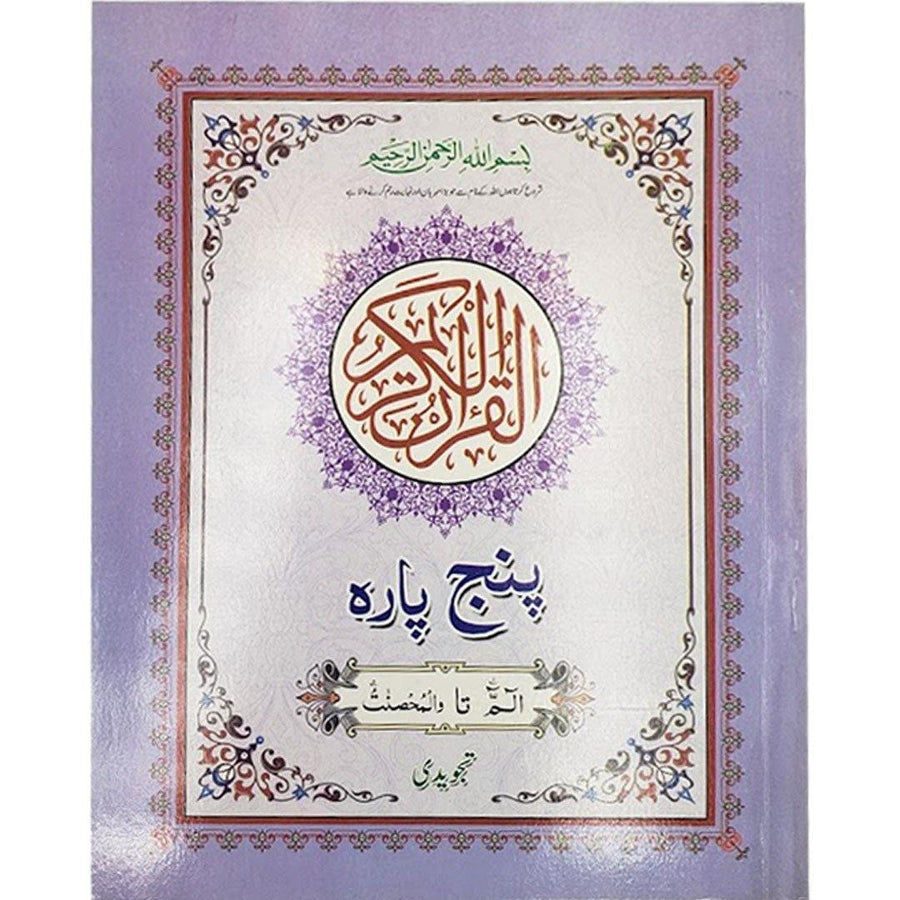 بِسْمِ اللهِ الرَّحْمٰنِ الرَّحِيْمِ
شروع کرتا ہوں اللہ کے نام سے جو بڑا مہربان اور نہایت رحم کرنے والا ہے
القرآن الكريم
پنج پارہ
الٓـمّٓ تا وَالْمُحْصَنٰتُ
تجویدی